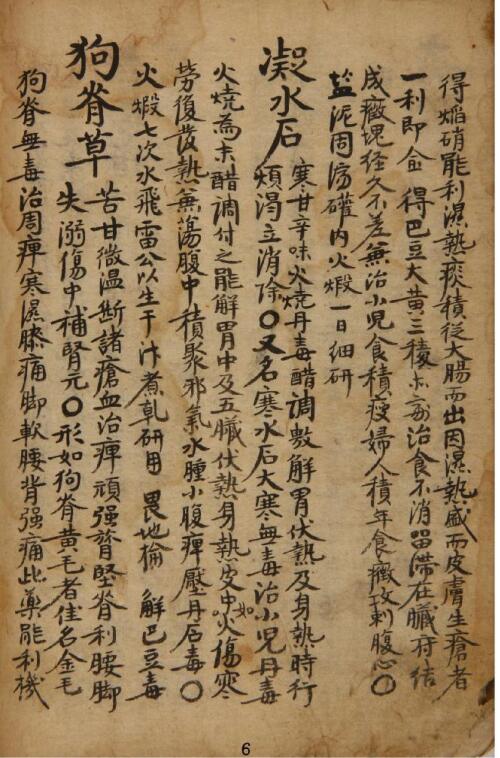 得焰硝能利濕熱痰積從大腸而出因濕熱盛而皮膚生瘡者
一利即 得巴豆大黃三稜末 治食不消留滯在臟府结
成癥塊径久不差兼治小児食積疫婦人積年食癥攻刺腹心〇
盐泥固 礶内火煅一日细研
凝水石
寒甘辛味火燒丹毒醋調敷解胃伏熱及身熱時行
煩渴立消除〇又名寒水石大寒無毒治小児丹毒
火燒為末醋調付之能解胃中及五臟伏熱身熱皮中如火傷寒
勞復發熱兼蕩腹中積聚邪氣水腫小腹痺壓丹石毒〇
火煅七次水飛雷公以生干汁煮乹研用 畏地榆 解巴豆毒
狗脊草
苦甘微温断諸瘡血治痺頑强膂堅脊利腰脚
失溺傷中補腎元〇形如狗脊黃毛者佳名金毛
狗脊無毒治周痺寒濕膝痛脚軟腰背强痛此藥能利機
6